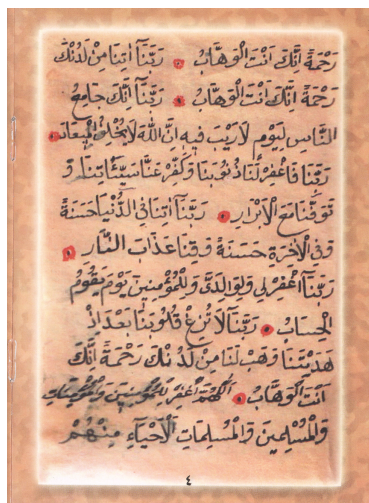 رَحْمَةً اِنَّكَ اَنْتَ الْوَهَّابُ رَبَّنَآ اٰتِنَا مِنْ لَدُنْكَ
رَحْمَةً اِنَّكَ اَنْتَ الْوَهَّابُ رَبَّنَآ اِنَّكَ جَامِعُ
النَّاسِ لِيَوْمٍ لَا رَيْبَ فِيهِ اِنَّ اللّٰهَ لَا يُخْلِفُ الْمِيعَادَ
رَبَّنَا فَاغْفِرْ لَنَا ذُنُوبَنَا وَكَفِّرْ عَنَّا سَيِّئَاتِنَا وَ
تَوَفَّنَا مَعَ الْاَبْرَارِ رَبَّنَآ اٰتِنَا فِي الدُّنْيَا حَسَنَةً
وَفِي الْاٰخِرَةِ حَسَنَةً وَقِنَا عَذَابَ النَّارِ
رَبَّنَا اغْفِرْ لِي وَلِوَالِدَيَّ وَلِلْمُؤْمِنِينَ يَوْمَ يَقُومُ
الْحِسَابُ رَبَّنَا لَا تُزِغْ قُلُوبَنَا بَعْدَ اِذْ
هَدَيْتَنَا وَهَبْ لَنَا مِنْ لَدُنْكَ رَحْمَةً اِنَّكَ
اَنْتَ الْوَهَّابُ اَللّٰهُمَّ اغْفِرْ لِلْمُؤْمِنِينَ وَالْمُؤْمِنَاتِ
وَالْمُسْلِمِينَ وَالْمُسْلِمَاتِ اَلْاَحْيَآءِ مِنْهُمْ
٤